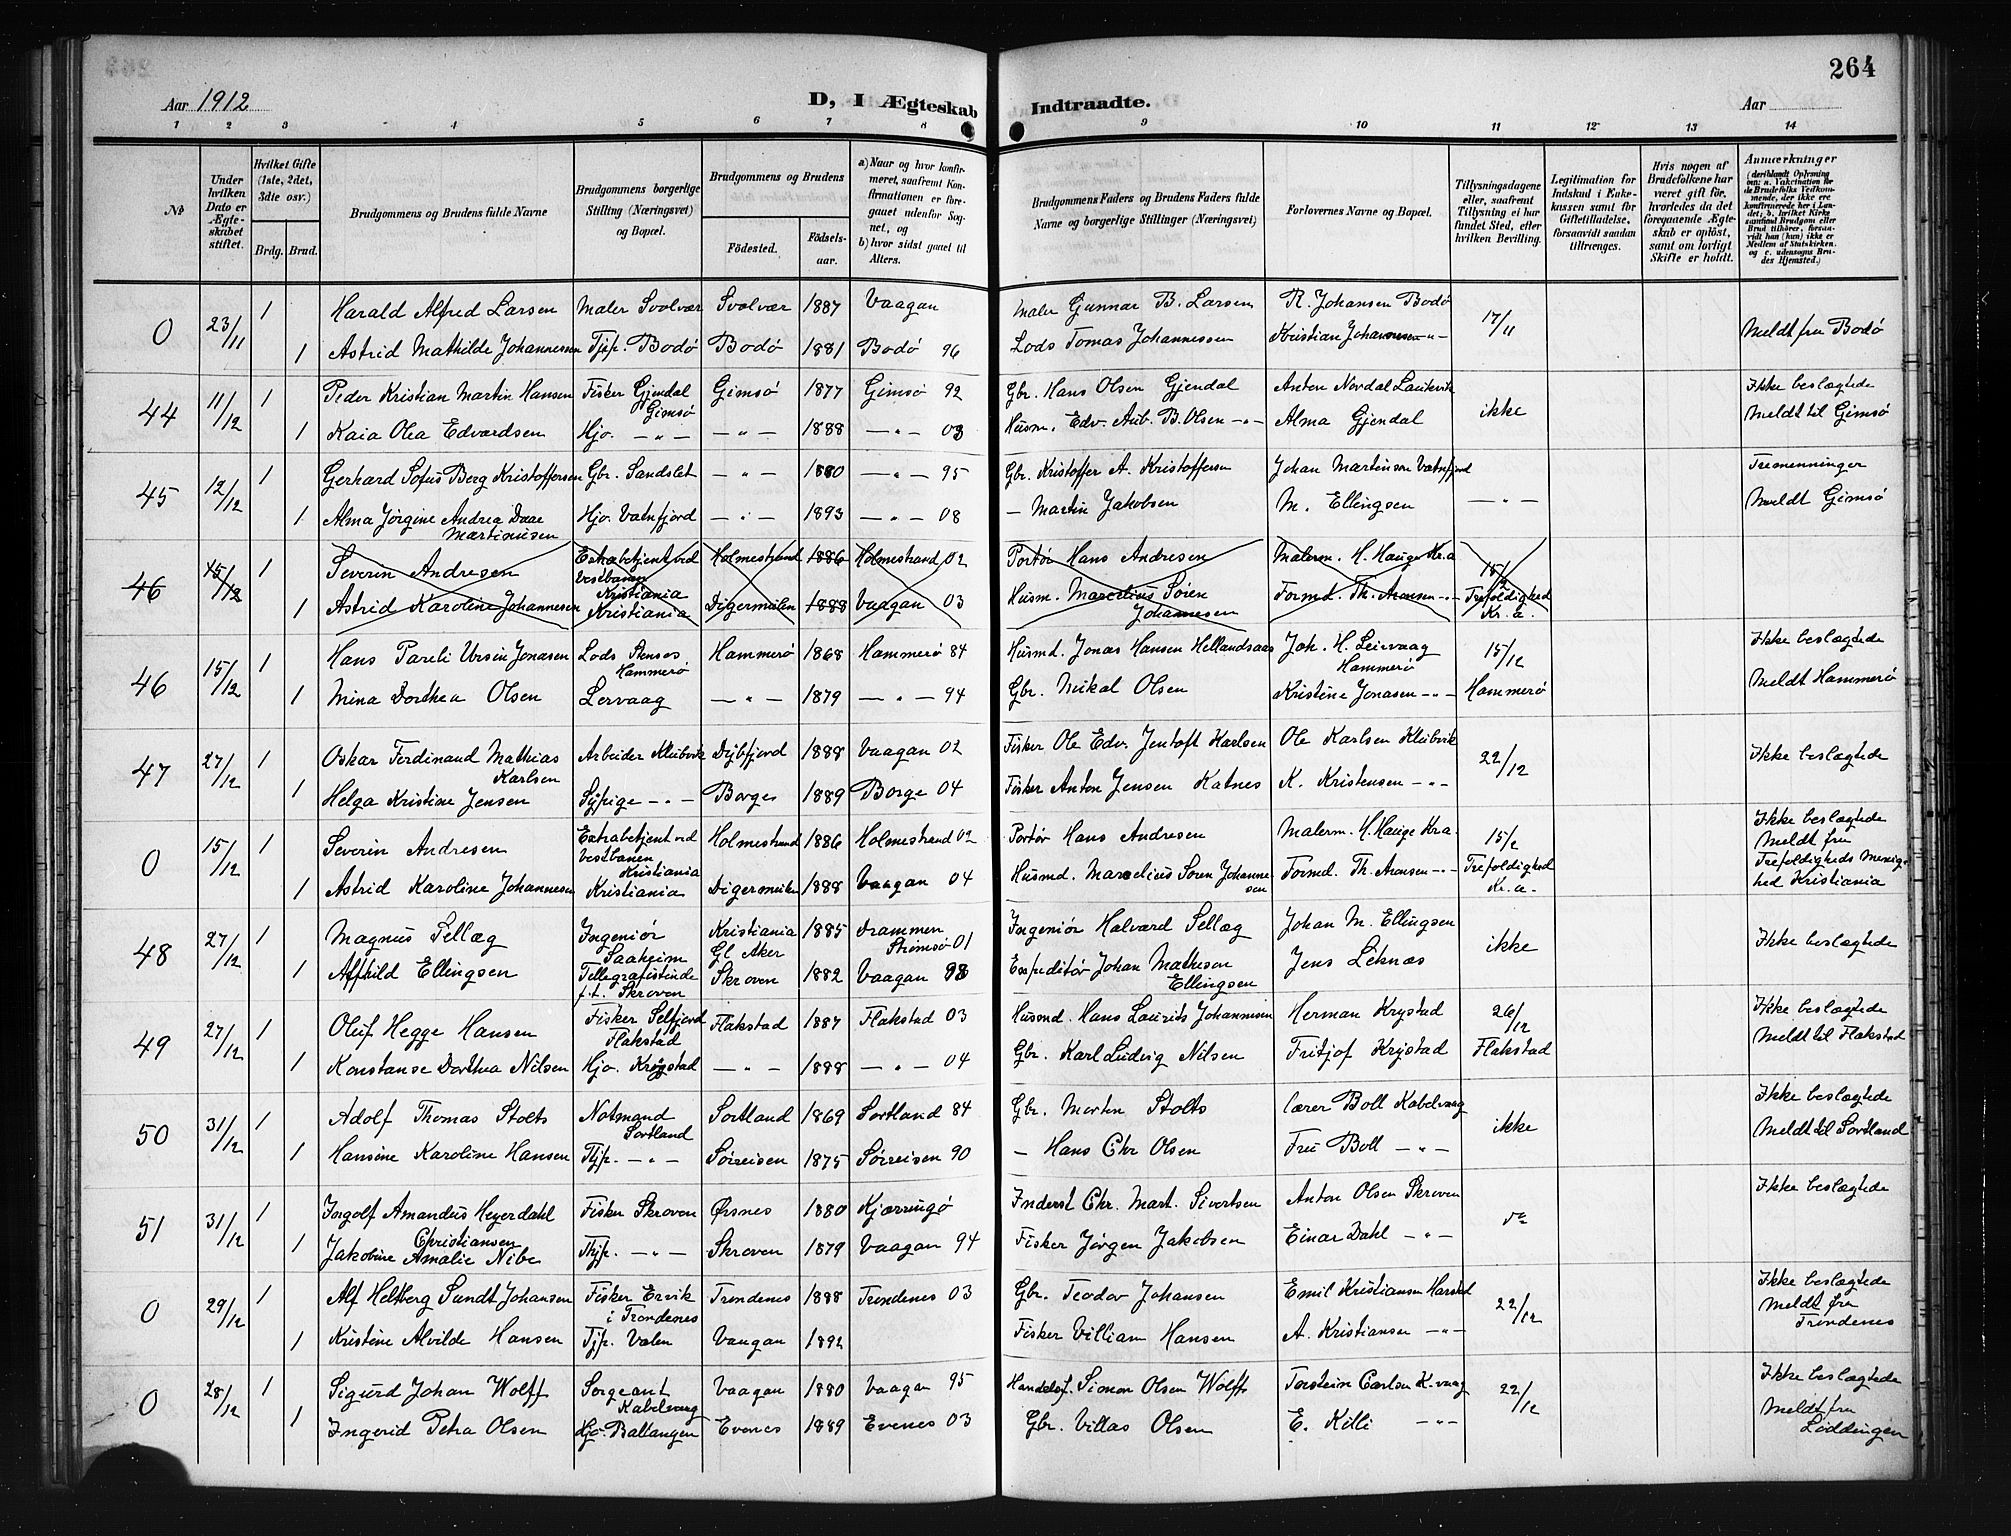 264
Aar 1912 D, I Ægteskab Indtraadte. Aar
1 2 3 4 5 6 7 8 9 10 11 12 13 14
No
Under hvilken Dato er Ægteskabet stiftet.
Hvilket Gifte (1ste, 2det, 3die osv.)
Brdg. Brud.
Brudgommens og Brudens fulde Navne
Brudgommens borgerlige Stilling (Næringsvei) og Bopæl.
Brudgommens og Brudens
Fødested. Fødselsaar.
a) Naar og hvor konfirmeret, saafremt Konfirmationen er foregaaet udenfor Sognet, og
b) hvor sidst gaaet til Alters.
Brudgommens Faders og Brudens Faders fulde Navne og borgerlige Stillinger (Næringsvei)
Forlovernes Navne og Bopæl.
Tillysningsdagene eller, saafremt Tillysning ei har fundet Sted, efter hvilken Bevilling.
Legitimation for Indskud i Enkekassen samt for Giftetilladelse, forsaavidt saadan tiltrænges.
Hvis nogen af Brudefolkene har været gift før, hvorledes da det foregaaende Ægteskab er opløst, samt om lovligt Skifte er holdt.
Anmærkninger (deriblandt Oplysning om: a. Vakcination for de Brudefolks Vedkommende, der ikke ere konfirmerede her i Landet; b. hvilket Kirkesamfund Brudgom eller Brud tilhører, forsaavidt han (hun) ikke er Medlem af Statskirken, og c. udensogns Brudes Hjemsted.)
0 23/11 1 Harald Alfred Larsen Maler Svolvær Svolvær 1887 Vaagan Maler Gunnar B. Larsen R. Johansen Bodø 17/11 Meldt fra Bodø
1 Astrid Mathilde Johannessen Tjp. Bodø Bodø 1881 Bodø 96 Lods Tomas Johannessen Kristian Johannesen -"-
44 11/12 1 Peder Kristian Martin Hansen Fisker Gjendal Gimsø Gimsø 1877 Gimsø 92 Gbr. Hans Olsen Gjendal Anton Nordal Laukvik ikke Ikke beslægtede
1 Kaia Olea Edvardsen Hjo. -"- -"- 1888 -"- 03 Husm. Edv. Aub. B. Olsen -"- Alma Gjendal Meldt til Gimsø
45 12/12 1 Gerhard Sofus Berg Kristoffersen Gbr. Sandslet -"- 1880 -"- 95 Gbr. Kristoffer A. Kristoffersen Johan Martinsen Vatnfjord -"- Tremenninger
1 Alma Jørgine Andrea Daae Martinusen Hjo. Vatnfjord -"- 1893 -"- 08 - Martin Jakobsen M. Ellingsen Meldt Gimsø
46 15/12 1 Severin Andresen Extrabetjent ved Vestbanen Kristiania Holmestrand 1886 Holmestrand 02 Portør Hans Andresen Malerm. H. Hauge Kr.a 15/12
1 Astrid Karoline Johannesen Kristiania Digermulen 1888 Vaagan 03 Husm. Marcelius Søren Johannesen Formd. Th. Aronsen -"- Trefoldighed Kr. a.
46 15/12 1 Hans Pareli Ursin Jonasen Lods Hammerø Hammerø 1868 Hammerø 84 Husmd. Jonas Hansen Hellandsaas Joh. H. Leirvaag Hammerø 15/12 Ikke beslægtede
1 Mina Dorthea Olsen Lervaag -"- 1879 -"- 94 Gbr. Mikal Olsen Kristine Jonasen -"- Hammerø Meldt Hammerø
47 27/12 1 Oskar Ferdinand Mathias Karlsen Arbeider Kleibvik Dybfjord 1888 Vaagan 02 Fisker Ole Edv. Jentoft Karlsen Ole Karlsen Kleibvik 22/12 Ikke beslægtede
1 Helga Kristine Jensen Sypige -"- Borge 1889 Borge 04 Fisker Anton Jensen Katnes K. Kristensen -"-
0 15/12 1 Severin Andresen Extrabetjent ved Vestbanen Kristiania Holmestrand 1886 Holmestrand 02 Portør Hans Andresen Malerm. H. Hauge Kra. 15/2 Ikke beslægtede
1 Astrid Karoline Johannesen Kristiania Digermulen 1888 Vaagan 04 Husmd. Marselius Søren Johannesen Formd. Th. Aronsen -"- Trefoldighed Kr. a. Meldt fra Trefoldigheds Menighed Kristiania
48 27/12 1 Magnus Sellæg Ingeniør Saaheim Kristiania Gl. Aker 1885 Drammen Strømsø 01 Ingeniør Halvard Sellæg Johan M. Ellingsen ikke Ikke beslægtede
1 Alfhild Ellingsen Tellegrafistinde f.t. Skroven Skroven 1882 Vaagan 98 Expeditør Johan Mathesen Ellingsen Jens Leknæs
49 27/12 1 Oluf Hegge Hansen Fisker Selfjord Flakstad Flakstad 1887 Flakstad 03 Husmd. Hans Laurits Johannesen Herman Krystad 26/12 Ikke beslægtede
1 Konstanse Dorthea Nilsen Hjo. Krystad -"- 1888 -"- 04 Gbr. Karl Ludvig Nilsen Fritjof Krystad Flakstad Meldt til Flakstad
50 31/12 1 Adolf Thomas Stolts Notmand Sortland Sortland 1869 Sortland 84 Gbr. Morten Stolts Lærer Boll Kabelvaag ikke Ikke beslægtede
1 Hansine Karoline Hansen Tjp. -"- Sørreisen 1875 Sørreisen 90 - Hans Chr Olsen Fru Boll -"- Meldt til Sortland
51 31/12 1 Ingolf Amandus Heyerdahl Christiansen Fisker Skroven Ørsnes 1880 Kjærringø Inderst Chr. Mart. Sivertsen Anton Olsen Skroven Ikke beslægtede
1 Jakobine Amalie Nibe Tjp. -"- Skroven 1879 Vaagan 94 Fisker Jørgen Jakobsen Einar Dahl -"-
0 29/12 1 Alf Heltberg Sundt Johansen Fisker Ervik i Trondenes Trondenes 1888 Trondenes 03 Gbr. Teodor Johansen Emil Kristiansen Harstad 22/12 Ikke beslægtede
1 Kristine Alvilde Hansen Tjp. Valen Vaagan 1892 Fisker Villiam Hansen A. Kristiansen -"- Meldt fra Trondenes
0 28/12 1 Sigurd Johan Wolff Sergeant Kabelvaag Vaagan 1880 Vaagan 95 Handelsf. Simon Olsen Wolff Torstein Carlsen K.vaag 22/12 Ikke beslægtede
1 Ingerid Petra Olsen Hjo. Ballangen Evenes 1889 Evenes 03 Gbr. Villas Olsen E. Killi -"- Meldt fra Løddingen